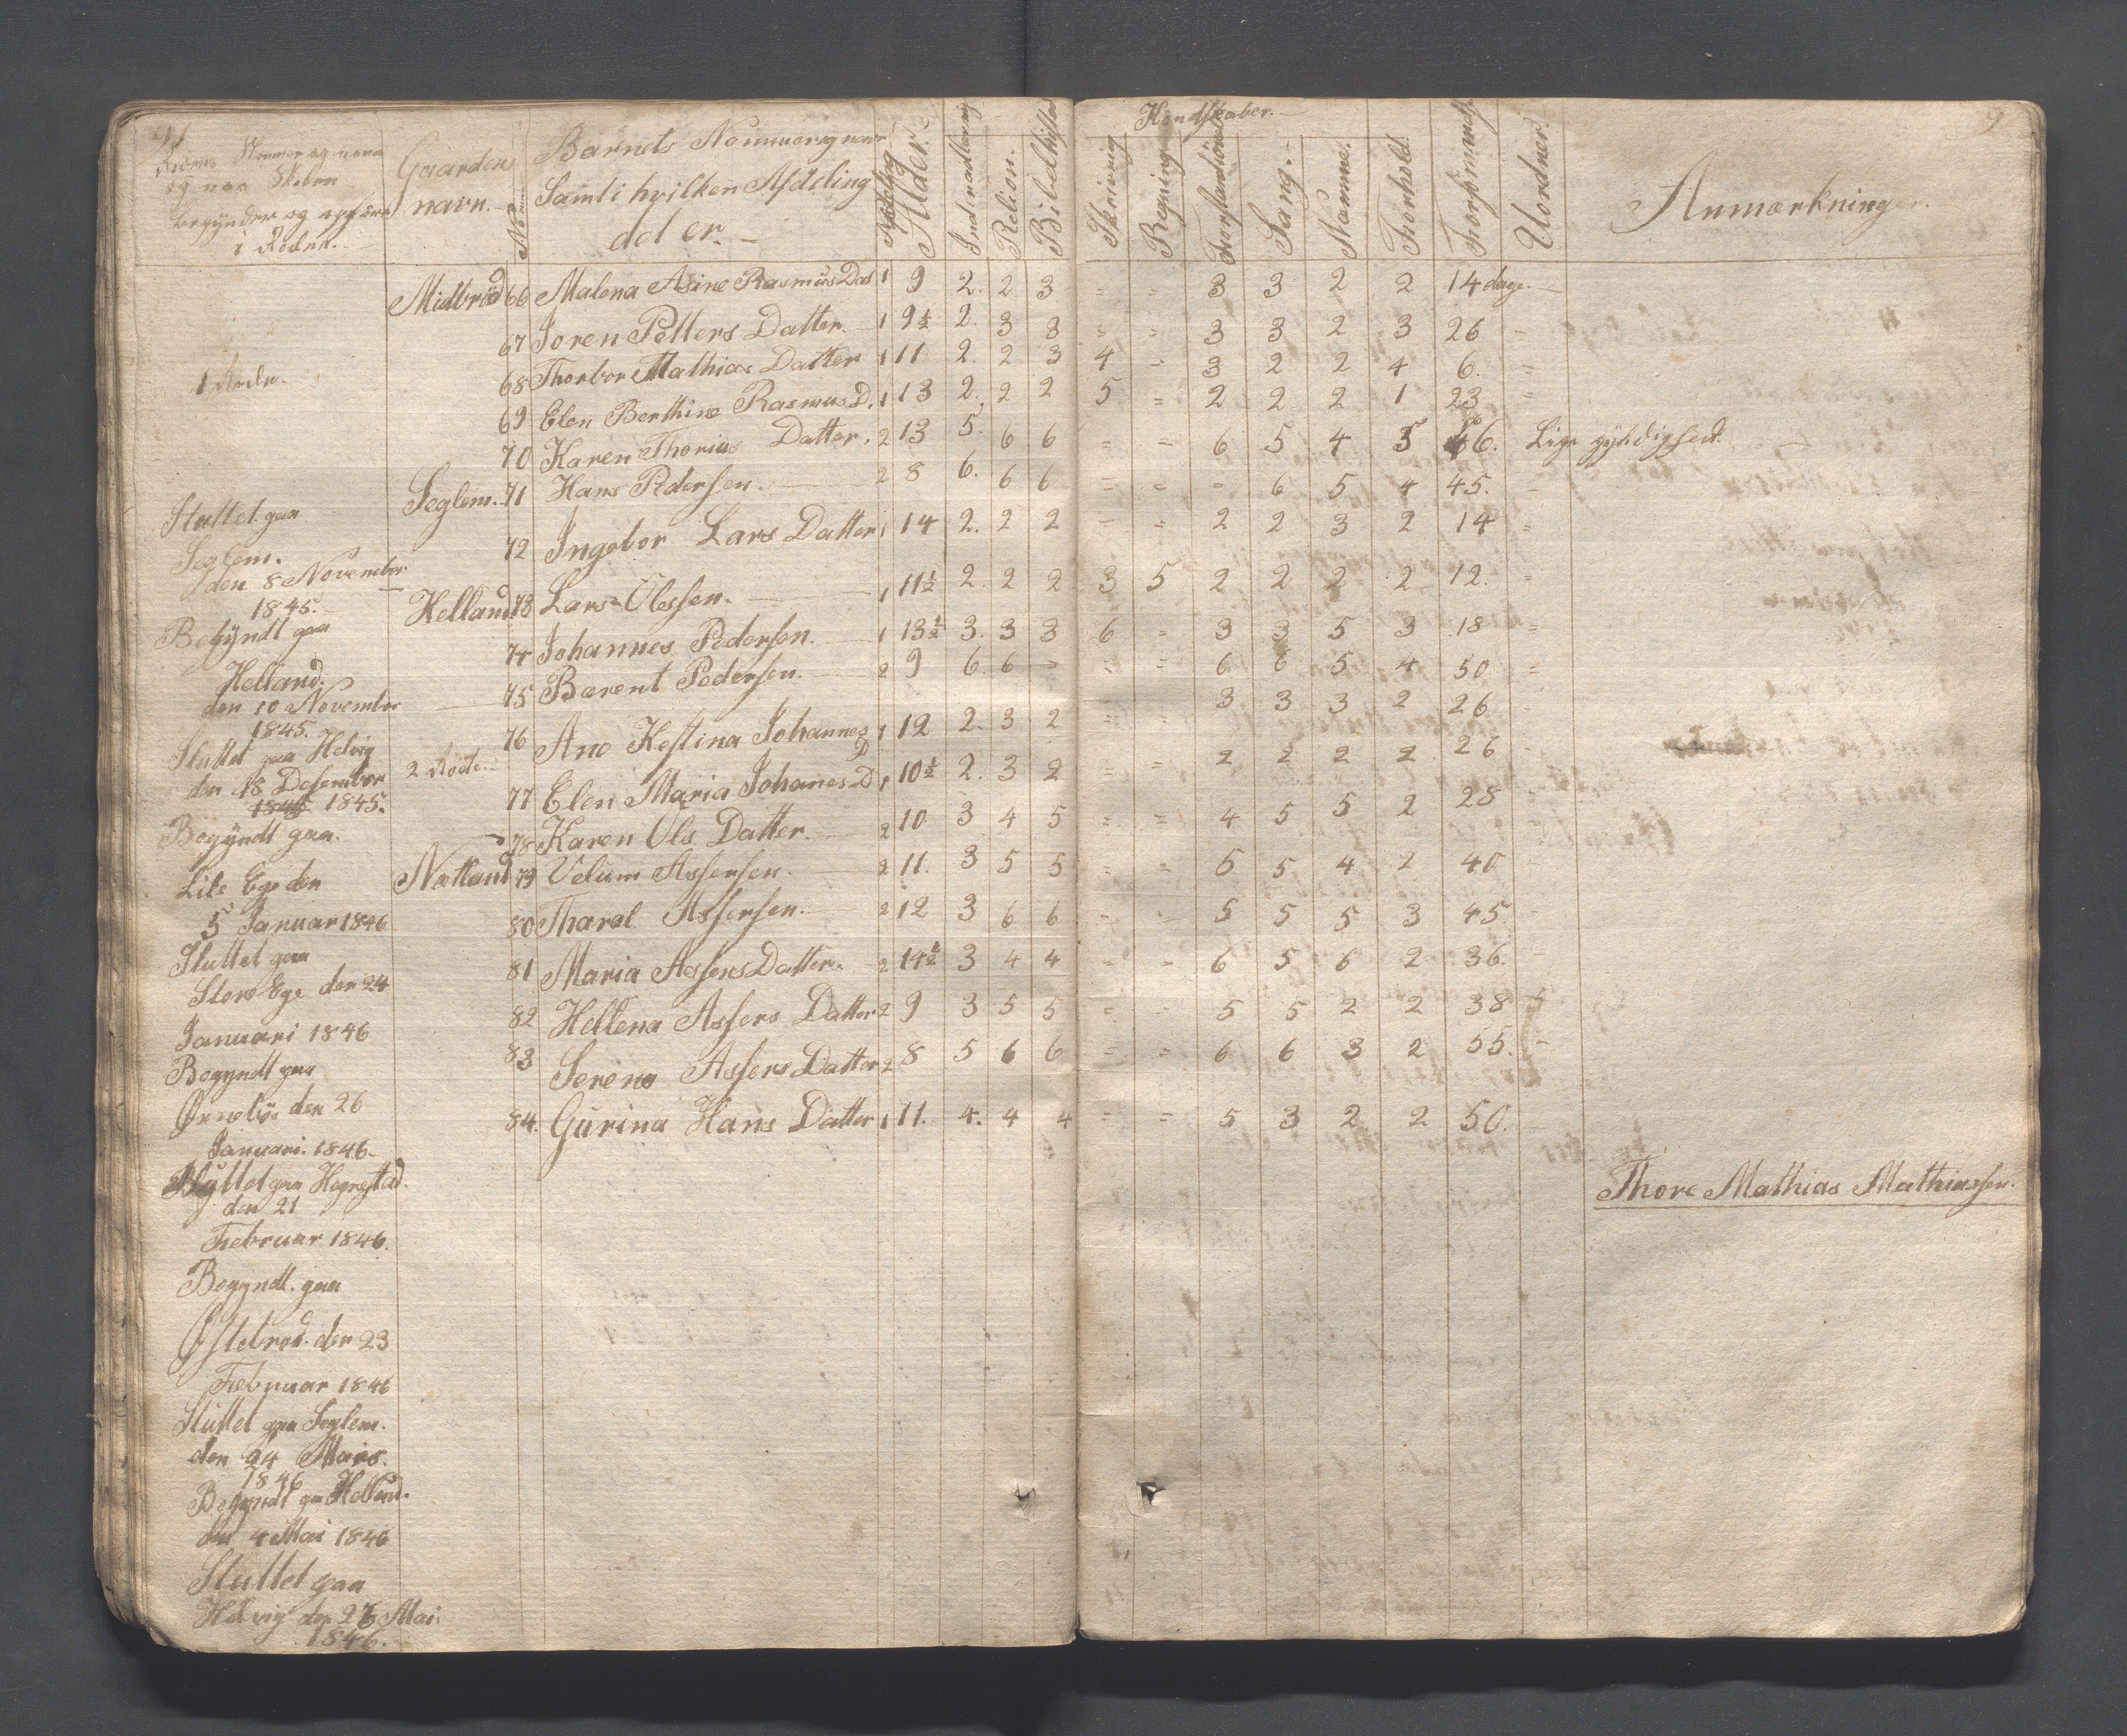 Kundskaber.
Rodens Nommer og navn
og naar Skolen
begynder og ophører
i Roden.
Gaardens
navn.
Barnets Nommer og navn
Samt i hvilken Afdeling
det er.
Afdeling
Alder.
Indenadlæsning
Relion.
Bibelhistor
Skrivning
Regning
Forstandsøvel
Sang.
Næmme.
Forhold
Forsømmels
Uordner.
Anmærkninger.
Midbrød 66 Malena Asine Rasmus Dat 1 9 2. 2 3 = = 3 3 2 2 14 dage.
67 Joren Petters Datter. 1 9½ 2. 3 3 = = 3 3 2 3 26 -
1 Rode. 68 Thorbor Mathias Datter 1 11 2. 2 3 4 = 3 2 2 4 6. =
69 Elen Berthine Rasmus D. 1 13 2. 2 2 5 = 2 2 2 1 23 =
70 Karen Thorias Datter. 2 13 5. 6 6 = = 6 5 4 5 46. Lige gyldighedt.
Seglem. 71 Hans Pedersen. 2 8 6. 6 6 = = = 6 5 4 45. -
72 Ingebor Lars Datter 1 14 2. 2 2 = = 2 2 3 2 14 =
Helland 73 Lars Olessen. 1 11½ 2. 2 2 3 5 2 2 2 2 12. =
74 Johannes Pedersen. 1 13½ 3. 3 3 6 = 3 3 5 3 18 =
75 Barent Pedersen. 2 9 6. 6 - = = 6 6 5 4 50 =
76 Ane Kestina Johannes D 1 12 2. 3 2 = = 3 3 3 2 26
2 Rode. 77 Elen Maria Johanes D 1 10½ 2. 3 2 = = 2 2 2 2 26 -
78 Karen Ols Datter. 2 10 3 4 5 = = 4 5 5 2 28
Nætland 79 Velum Assersen. 2 11. 3 5 5 = = 5 5 4 2 40
80 Tharal Assersen. 2 12 3 6 6 = = 5 5 5 3 45. -
81 Maria Assers Datter. 2 14½ 3 4 4 = = 6 5 6 2 36. -
82 Hellena Assers Datter 2 9 3 5 5 = = 5 5 2 2 38 5
83 Serena Assers Datter 2 8 5 6 6 = = 6 6 3 2 55. -
84. Gurina Hans Datter 1 11. 4. 4 4 = = 5 3 2 2 50.
Sluttet paa
Seglem.
den 8 November
1845.
Begyndt paa
Helland.
den 10 November
1845.
Sluttet paa Helvig
den 18 Desember
1845.
Begyndt paa.
Lile Ege den
5 Januar 1846
Sluttet paa
Store Ege den 24
Januari 1846
Begyndt paa
den 26
Januari. 1846.
Sluttet paa Hegrestad.
den 21
Februar 1846.
Begyndt. paa
Østebrød. den 23
Februar 1846
Sluttet paa Seglem.
den 24 Mars.
1846
Begyndt paa Helland.
den 4 Mai 1846
Sluttet paa
Helvig den 26 Mai
1846.
Thore Mathias Mathiassen.